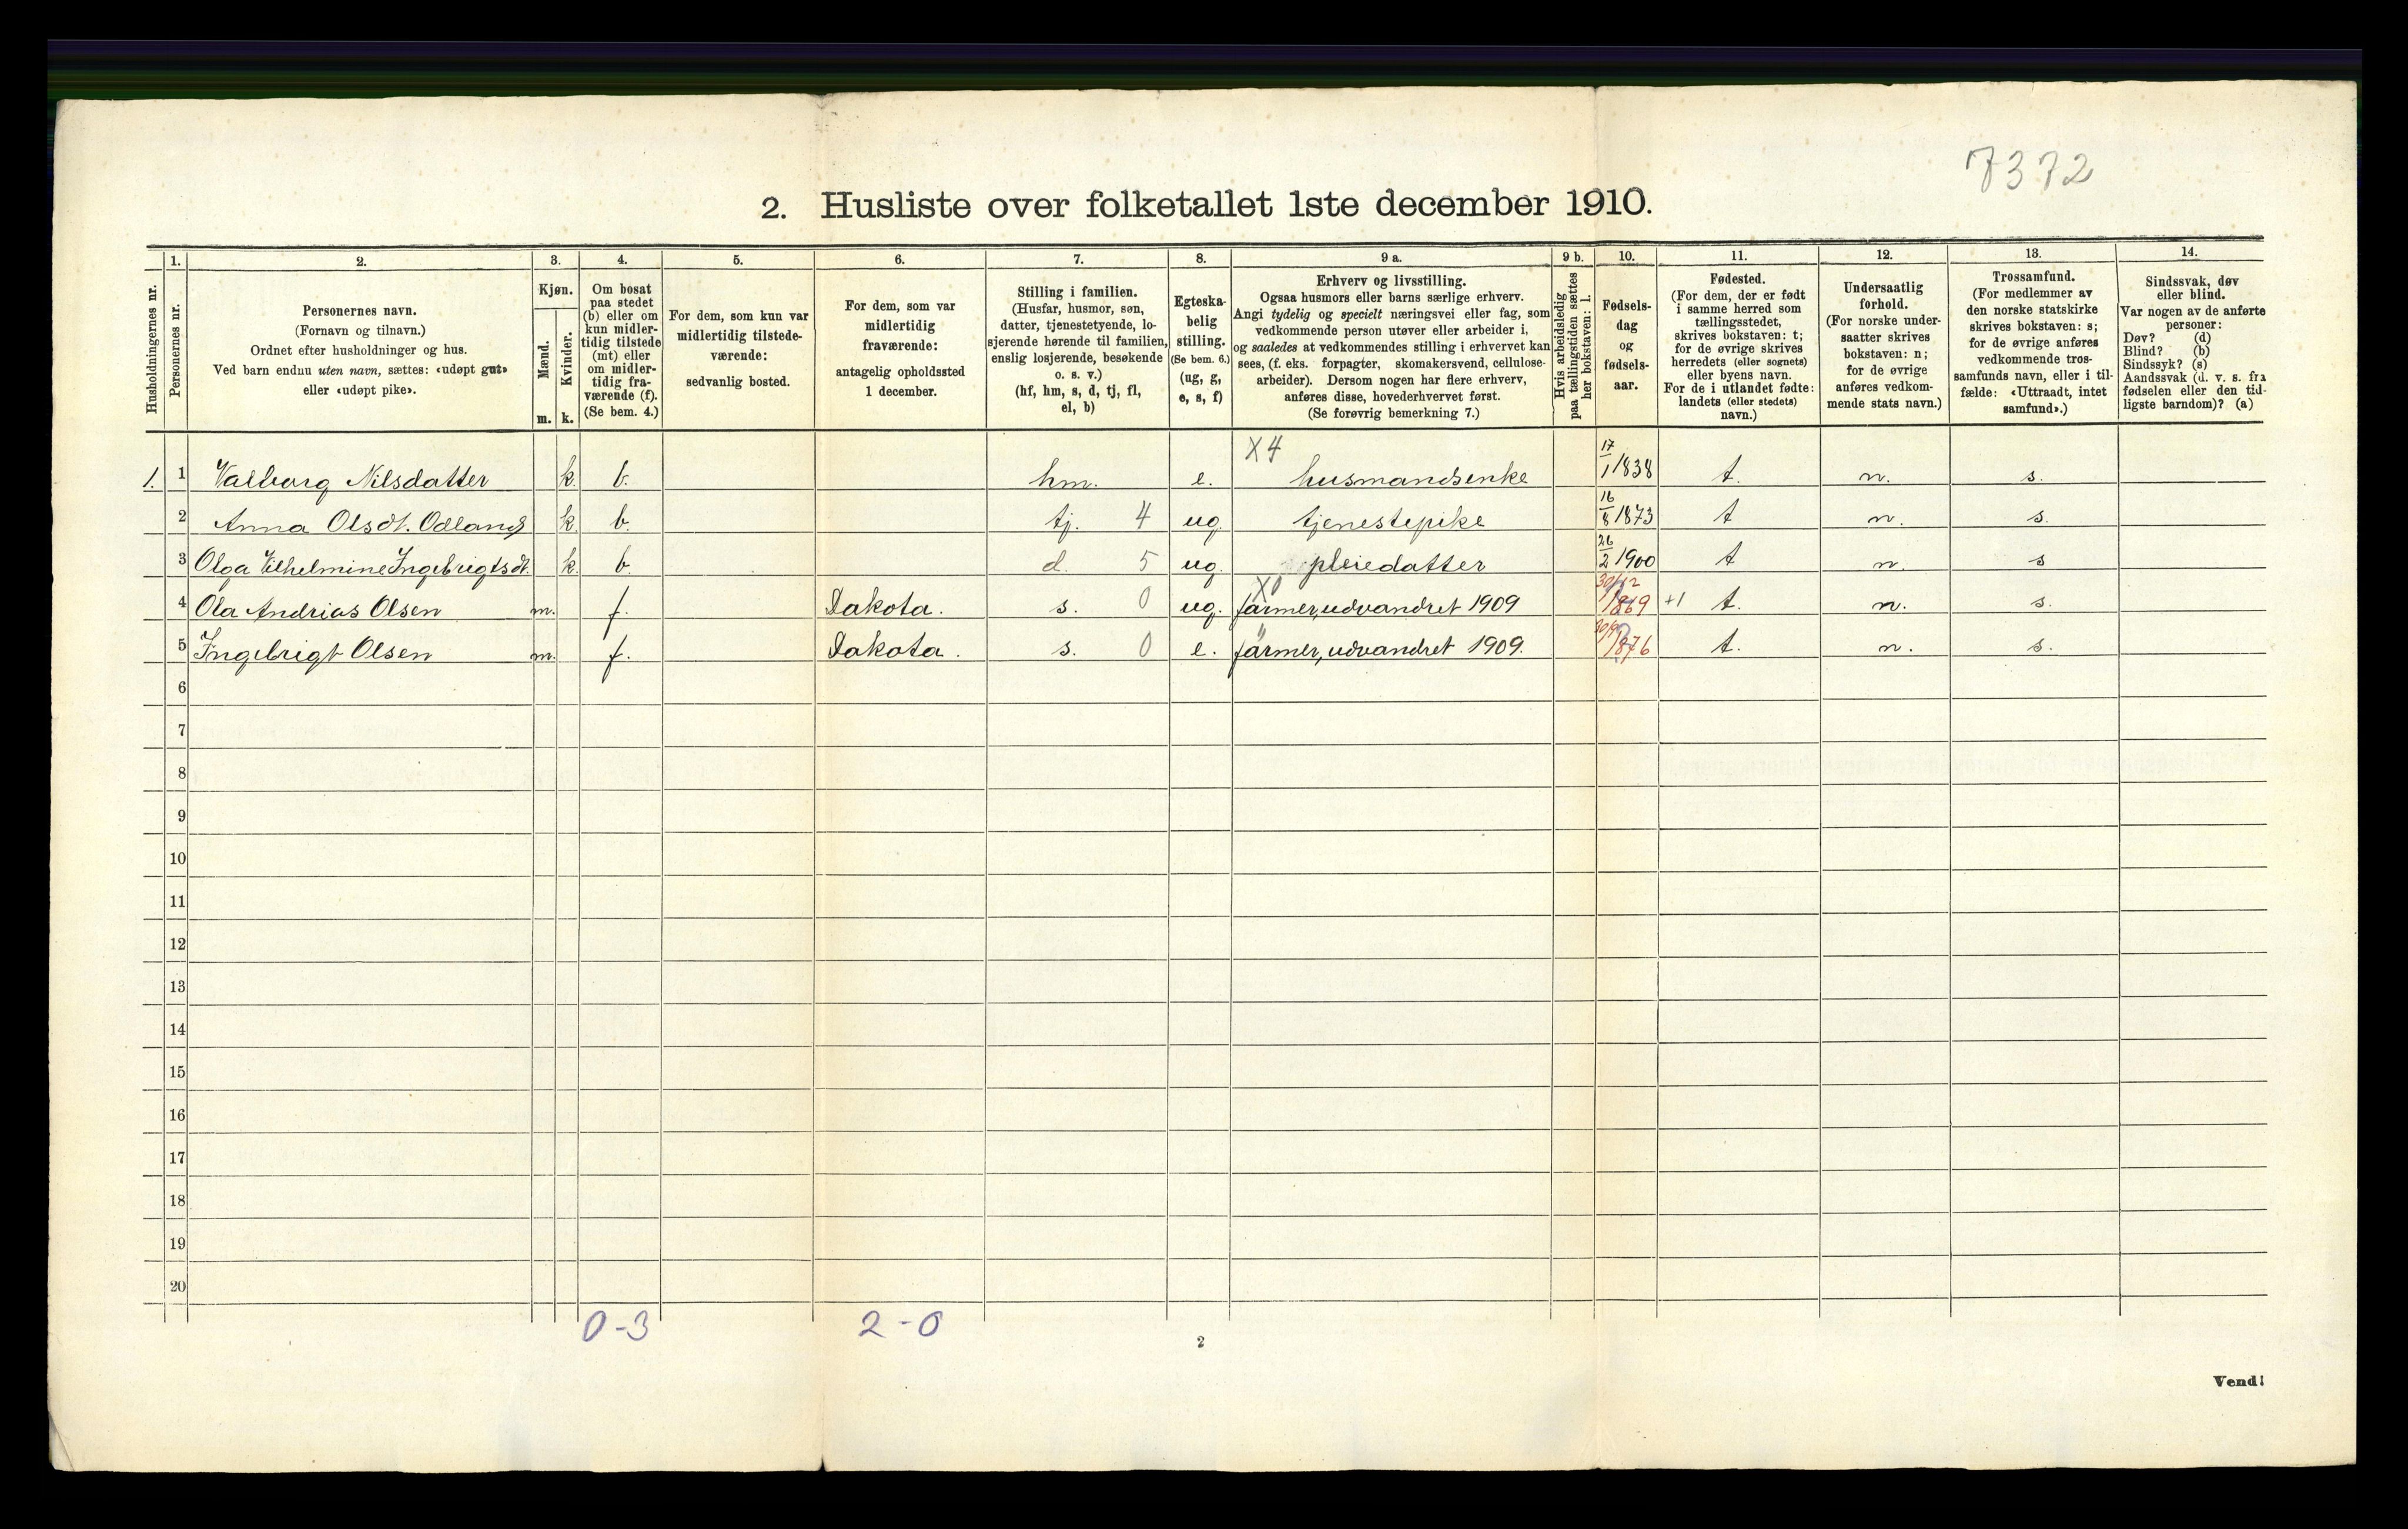 7372
2. Husliste over folketallet 1ste december 1910.
Husholdningernes nr.
1.
Personernes nr.
2.
Personernes navn.
(Fornavn og tilnavn.)
Ordnet efter husholdninger og hus.
Ved barn endnu uten navn, sættes: «udøpt gut»
eller «udøpt pike».
3.
Kjøn.
Mænd.
m.
Kvinder.
k.
4.
Om bosat
paa stedet
(b) eller om
kun midler-
tidig tilstede
(mt) eller
om midler-
tidig fra-
værende (f).
(Se bem. 4.)
5.
For dem, som kun var
midlertidig tilstede-
værende:
sedvanlig bosted.
6.
For dem, som var
midlertidig
fraværende:
antagelig opholdssted
1 december.
7.
Stilling i familien.
(Husfar, husmor, søn,
datter, tjenestetyende, lo-
sjerende hørende til familien,
enslig losjerende, besøkende
o. s. v.)
(hf, hm, s, d, tj, fl,
el, b)
8.
Egteska-
belig
stilling.
(Se bem. 6.)
(ug, g,
e, s, f)
9 a.
Erhverv og livsstilling.
Ogsaa husmors eller barns særlige erhverv.
Angi tydelig og specielt næringsvei eller fag, som
vedkommende person utøver eller arbeider i,
og saaledes at vedkommendes stilling i erhvervet kan
sees, (f. eks. forpagter, skomakersvend, cellulose-
arbeider). Dersom nogen har flere erhverv,
anføres disse, hovederhvervet først.
(Se forøvrig bemerkning 7.)
9 b.
Hvis arbeidsledig
paa tællingstiden sættes
her bokstaven: l.
10.
Fødsels-
dag
og
fødsels-
aar.
11.
Fødested.
(For dem, der er født
i samme herred som
tællingsstedet,
skrives bokstaven: t;
for de øvrige skrives
herredets (eller sognets)
eller byens navn.
For de i utlandet fødte:
landets (eller stedets)
navn.)
12.
Undersaatlig
forhold.
(For norske under-
saatter skrives
bokstaven: n;
for de øvrige
anføres vedkom-
mende stats navn.)
13.
Trossamfund.
(For medlemmer av
den norske statskirke
skrives bokstaven: s;
for de øvrige anføres
vedkommende tros-
samfunds navn, eller i til-
fælde: «Uttraadt, intet
samfund».)
14.
Sindssvak, døv
eller blind.
Var nogen av de anførte
personer:
Døv? (d)
Blind? (b)
Sindssyk? (s)
Aandssvak (d. v. s. fra
fødselen eller den tid-
ligste barndom)? (a)
X4
1. 1 Valborg Nilsdatter k. b. hm. e. husmandsenke 17/1 1838 t. n. s.
2 Anna Olsdt. Odland k. b. tj. 4 ug. tjenestepike 16/8 1873 t n. s.
3 Olga Vilhelmine Ingebrigtsdt. k. b. d. 5 ug. pleiedatter 26/2 1900 t n. s
X0
4 Ola Andrias Olsen m. f. Dakota. s. 0 ug. farmer, udvandret 1909 30/12 1869 +1 t. n. s.
"
5 Ingebrigt Olsen m. f. Dakota. s. 0 e. farmer, udvandret 1909. 1876 t. n. s.
6
7
8
9
10
11
12
13
14
15
16
17
18
19
20
0-3 2-0
2
Vend!